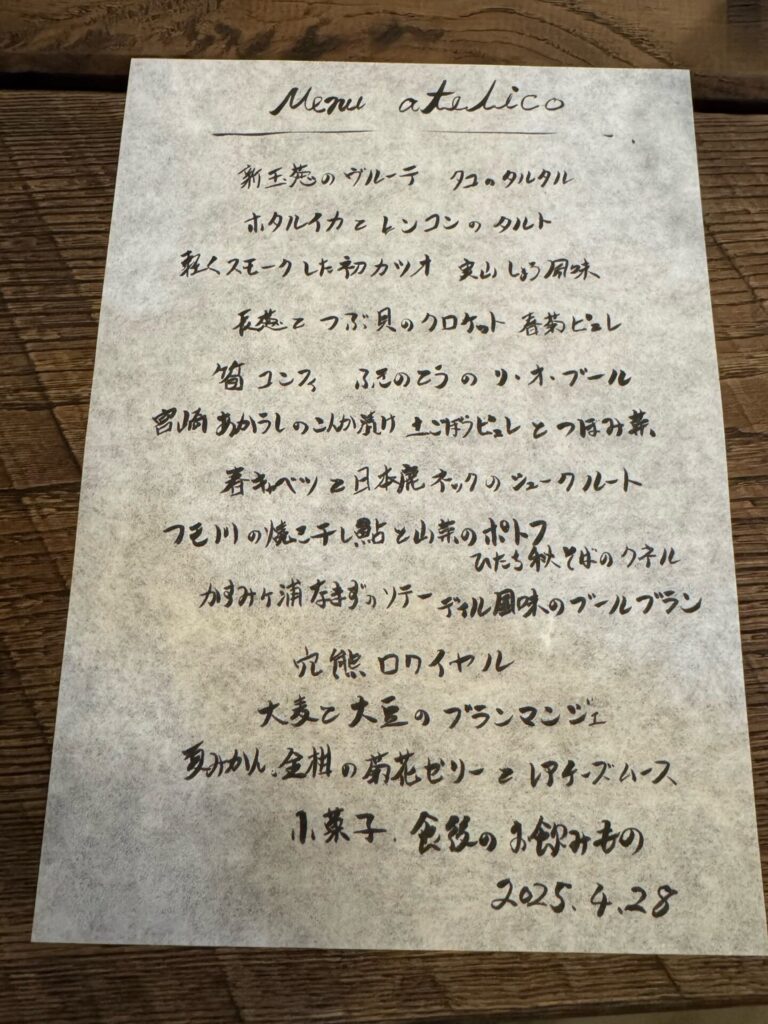 Menu atelico
新玉葱のヴルーテ タコのタルタル
ホタルイカとレンコンのタルト
軽くスモークした初カツオ 実山しょう風味
長葱とつぶ貝のクロケット 春菊ピュレ
筍コンフィ ふきのとうのリ・オ・ブール
宮崎あかうしのこんか漬け 土ごぼうピュレとつぼみ菜
春キャベツと日本鹿ネックのシュークルート
つも川の焼き干し鮎と山菜のポトフ
ひたち秋そばのクネル
かすみヶ浦なまずのソテー ディル風味のブールブラン
穴熊ロワイヤル
大麦と大豆のブランマンジェ
夏みかん、金柑の菊花ゼリーとレアチーズムース
小菓子、食後のお飲みもの
2025.4.28